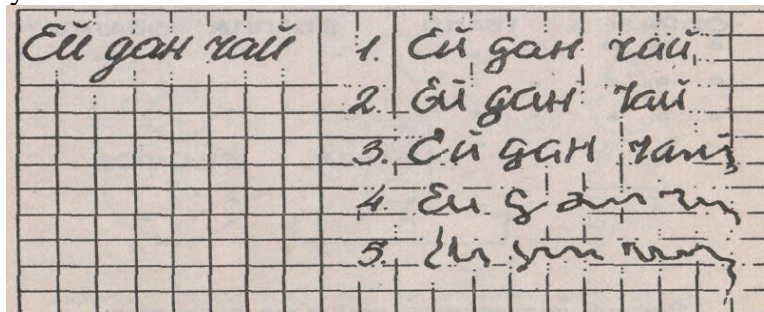 Ей дан чай 1. Ей дан чай
2 Ей дан чай
3. Ей дан чай
4. Ей дан
5.